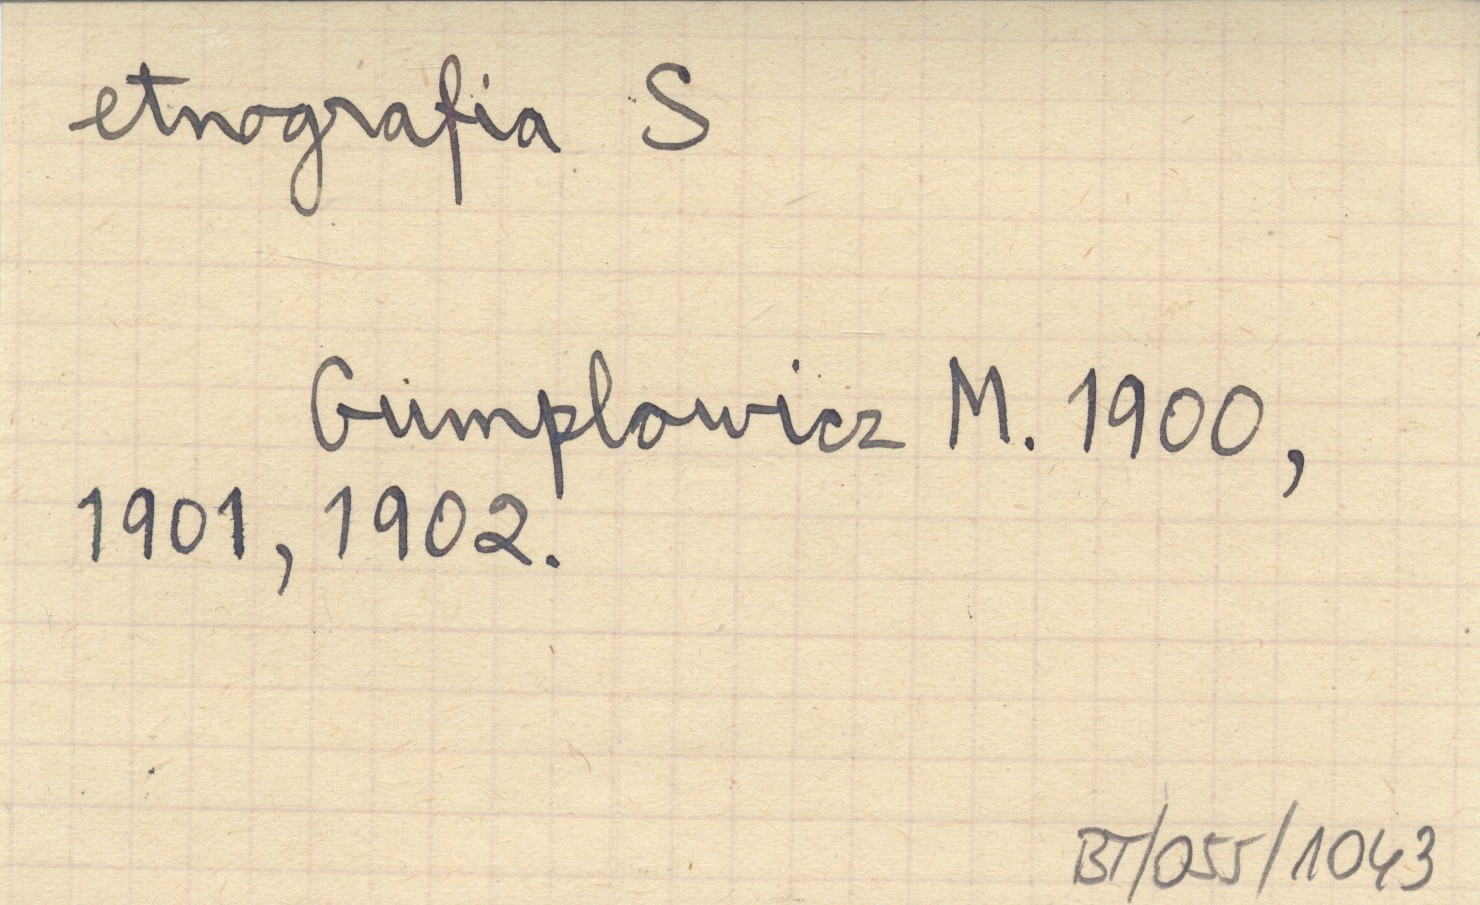 etnografia S
Gumplowicz M. 1900,
1901, 1902.
BT/055/1043